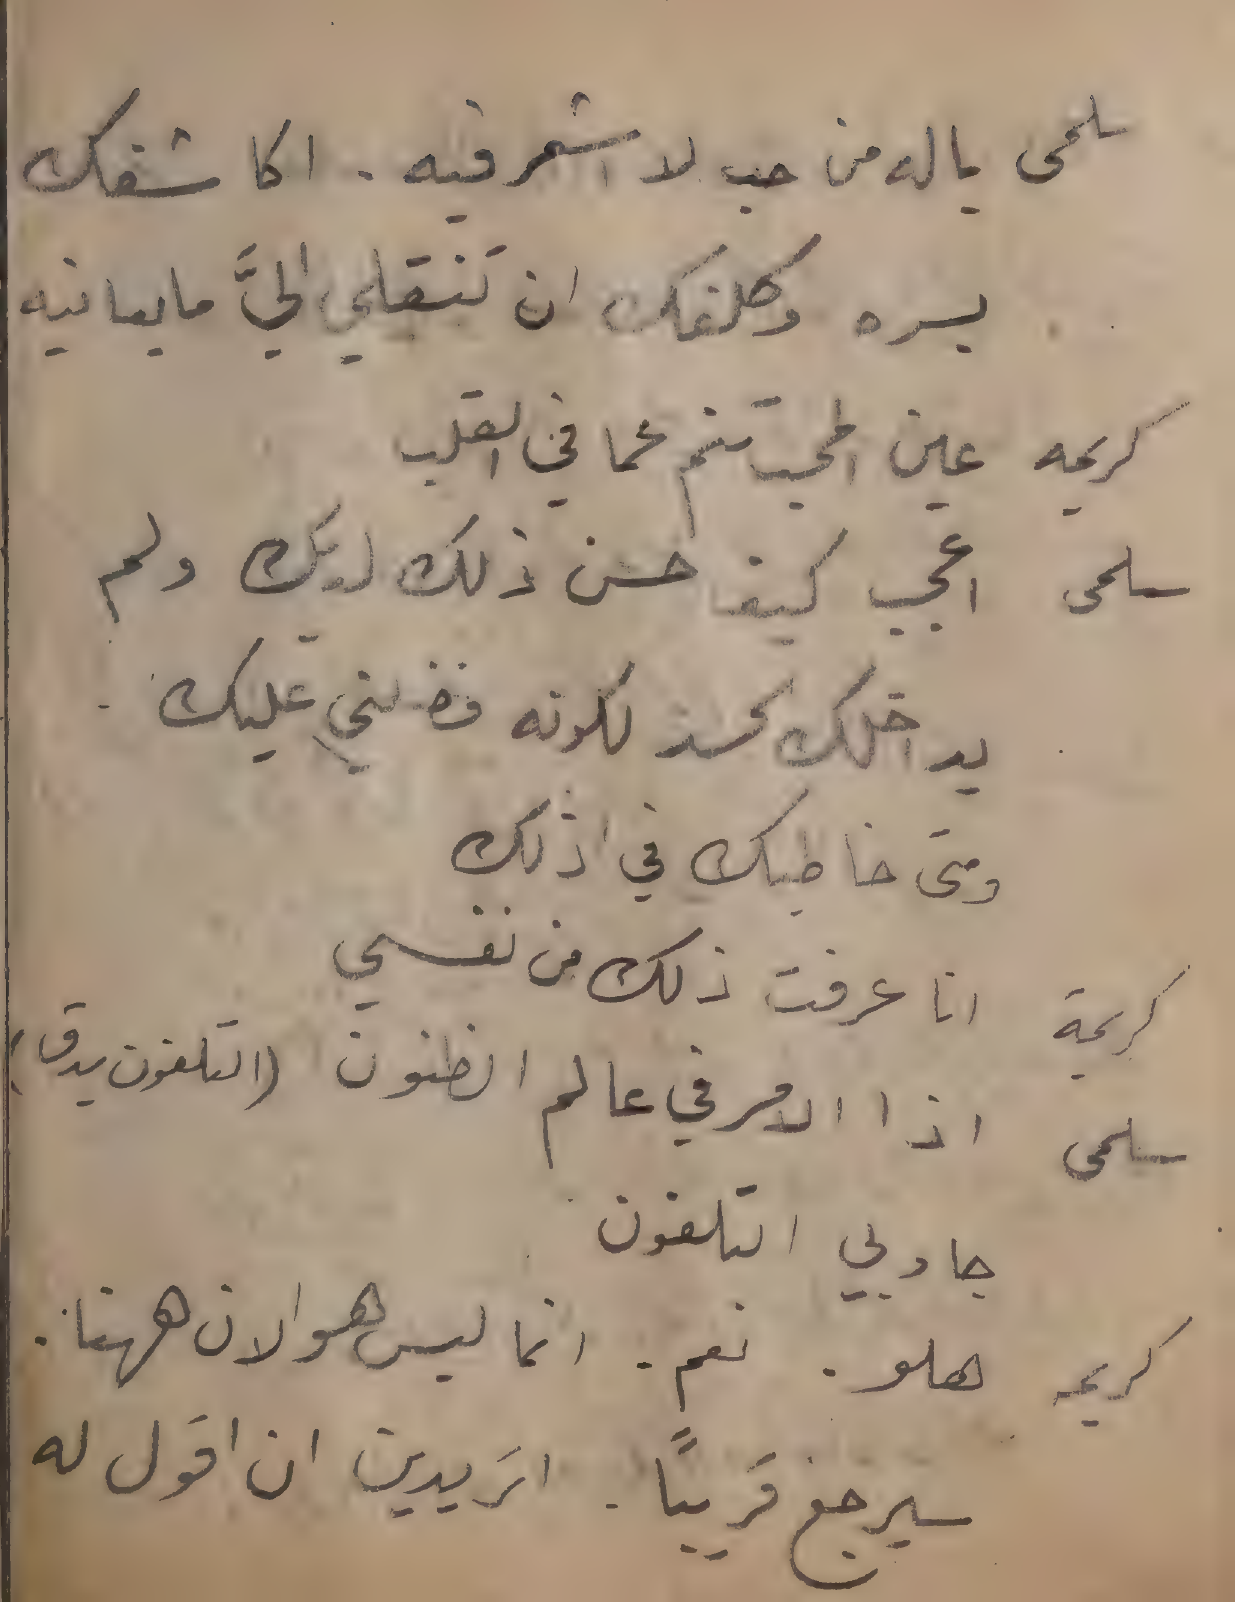 سلمى يا له من حب لا اشعر فيه . اكاشفك
بسره وكلفك ان تنقلي اليَّ ما يعانيه
كريمه عين المحب تنم عما في القلب
سلمى اعجب كيف حسن ذلك لديك ولم
يداخلك حسد لكونه فضلني عليك .
ومتى خاطبك في ذلك
كريمة انا عرفت ذلك من نفسي
سلمى اذا الامر في عالم الظنون (التلفون يدق)
جاوبي التلفون
كريمه هلو . نعم . انما ليس هو الان ههنا .
سيرجع قريبًا . اتريدين ان اقول له